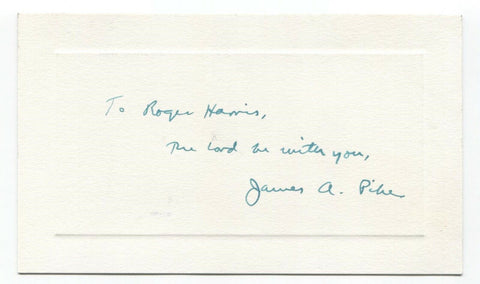 To Roger Harris,
The Lord be with you,
James A. Pike